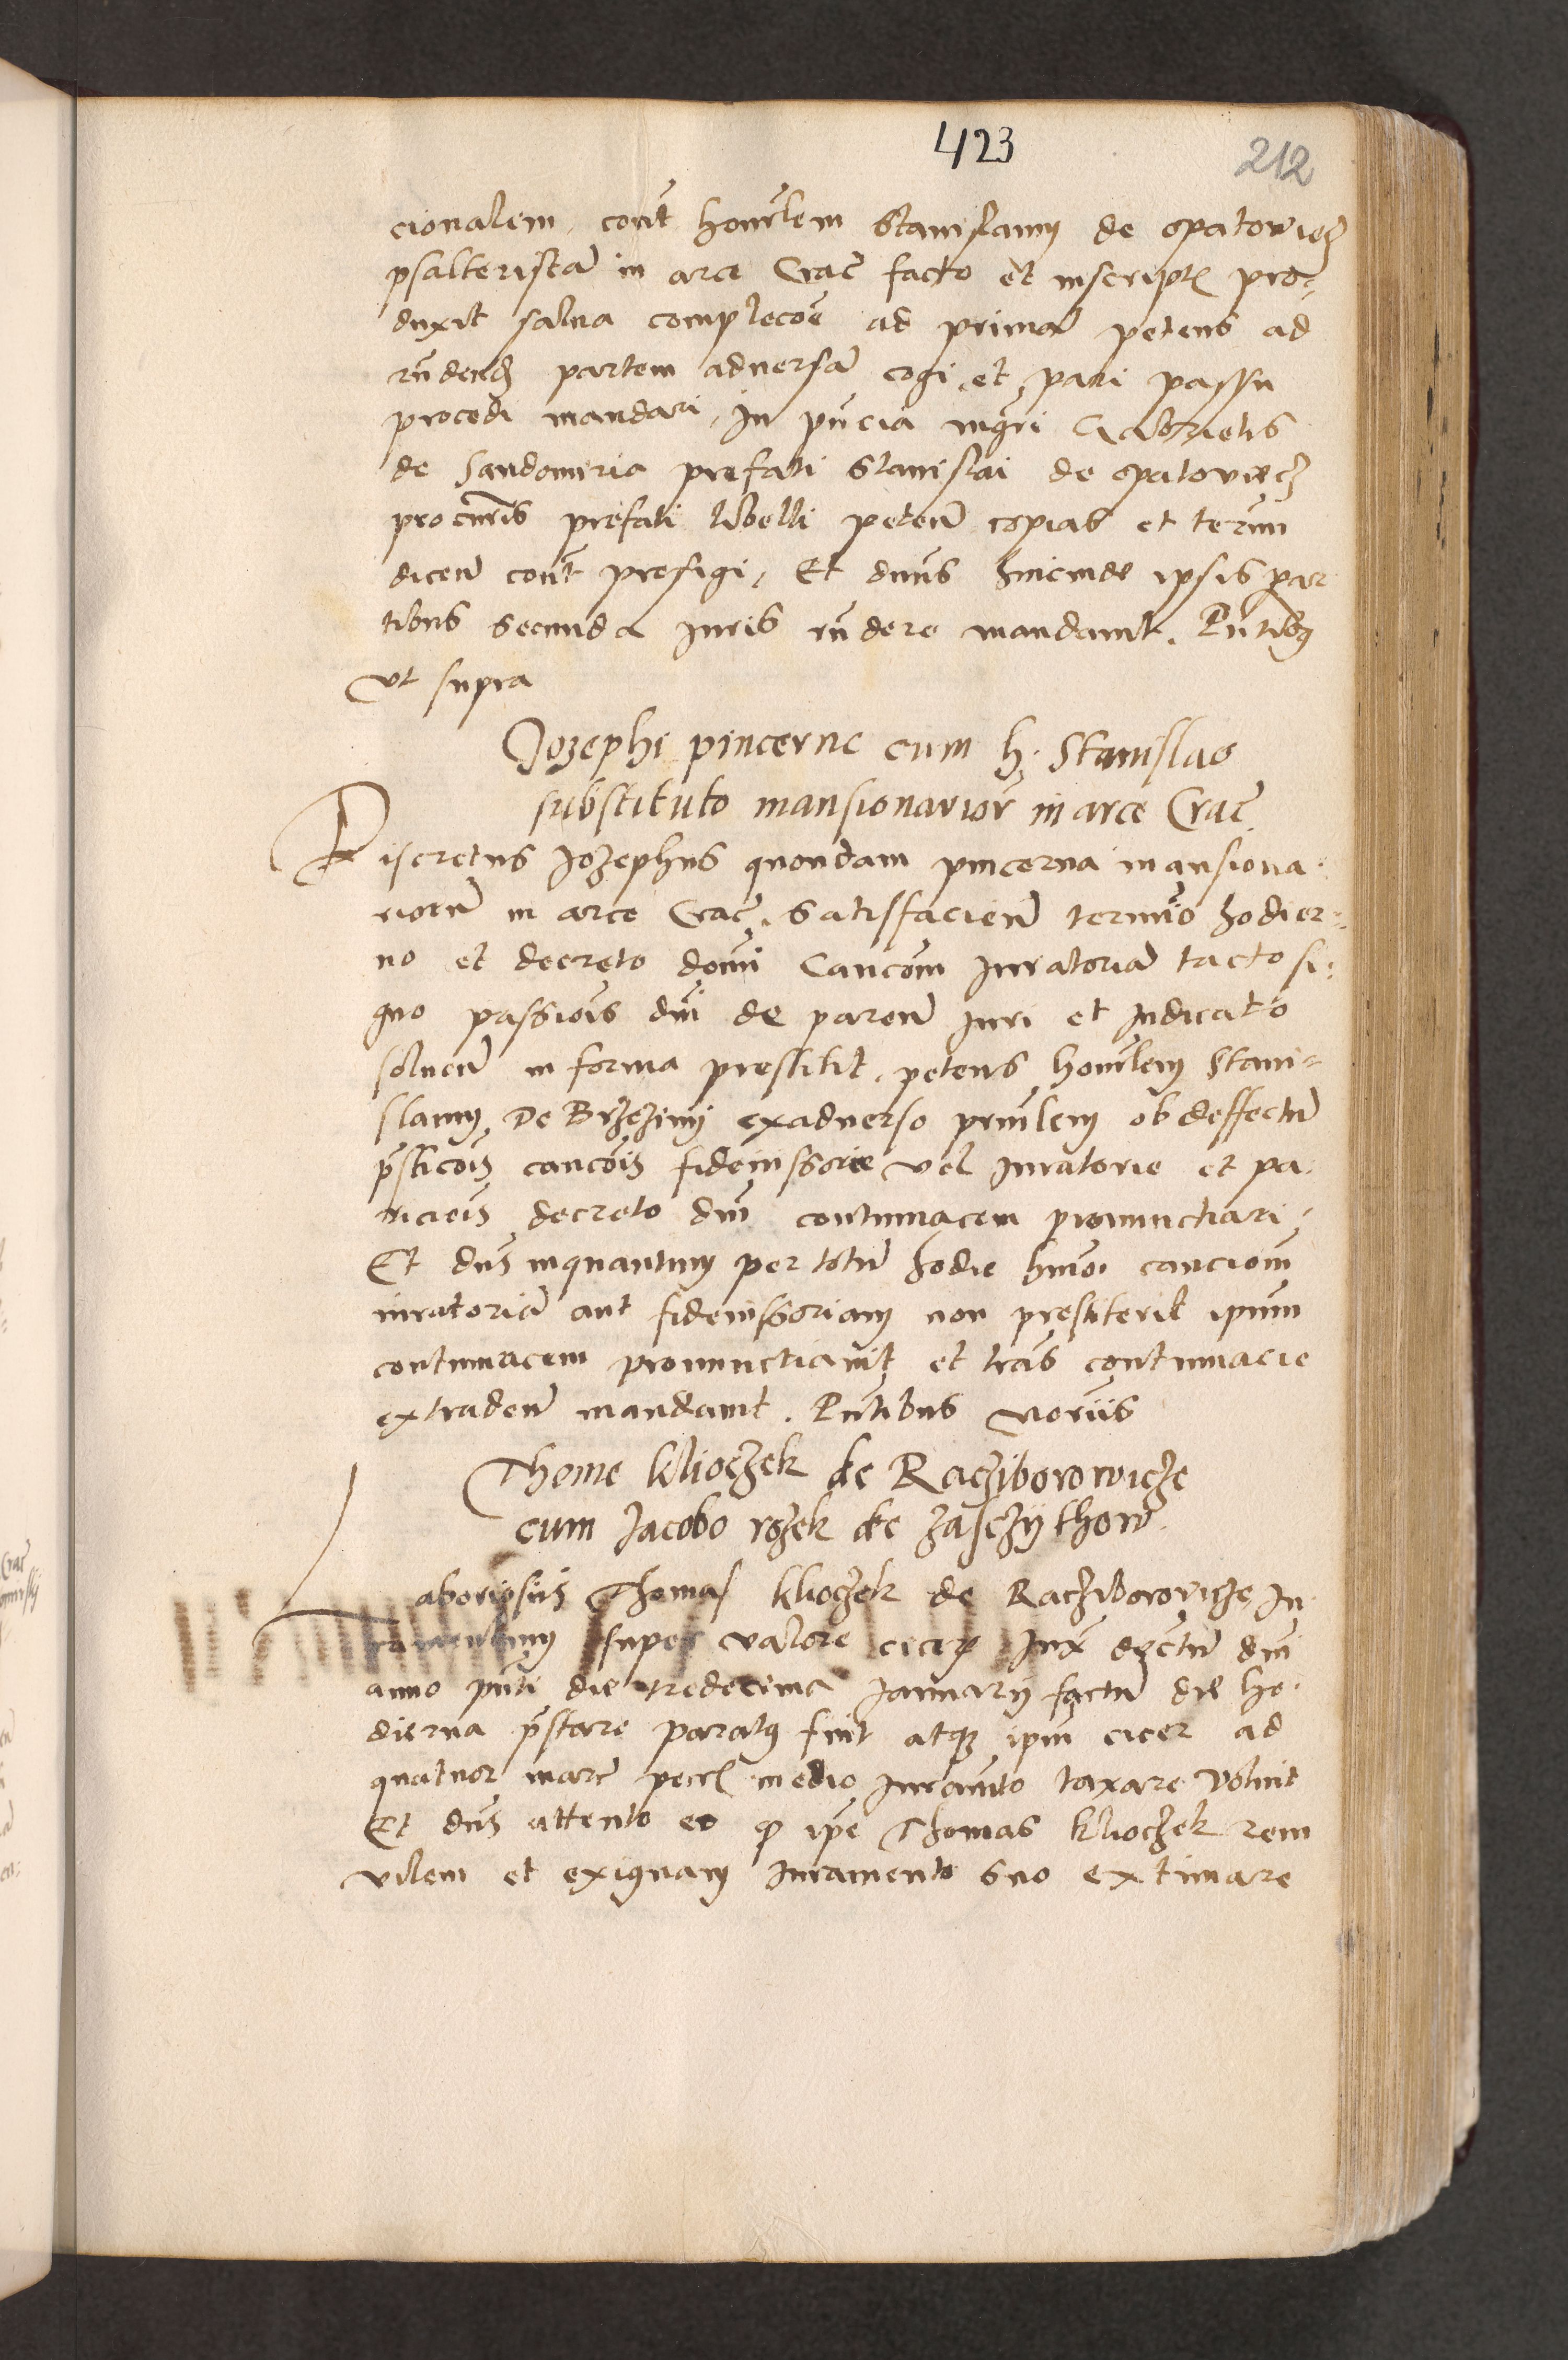 423
212
cionalem, cont̄ honorlem Stanislaum de opatowiecz
psalteristā in arce Crac̄ facto et inscript̄ pro-
duxit salua complecōe ad primā petens ad
rn̄dendū partem aduersā cogi et pari passu
procedi mandari, In pn̄cia mgr̄i Gabrielis
de Sandomiria prefati Stanislai de opatowiecz
procur̄is prefati libelli peteń copias et term̄
diceń cont̄ prefigi, Et dn̄us hincinde ipsis par
tibus secunda Iuris rn̄dere mandauit. Pn̄tibus
vt supra
Jozephi pincerne cum h. Stanislao
substituto mansionarior̄ in arce Crac̄
Discretus Jozephus quondam pincerna mansiona-
riorū in arce Crac̄. satisfacień termīo hodier-
no et decreto domī Caucōm Iuratoriā tacto si-
gno passiōis dn̄i de pareń Iuri et Iudicato
soluen̄ in forma prestitit, petens honorlem Stani-
slaum De Brzeziny exaduerso prin̄lem ob deffectū
p̄sticōis caucōis fideiussorie vel Iuratorie et pa-
ricōis decreto dn̄i contumacem pronunctiari,
Et dn̄s inquantum per totū hodie hm̄oi caucionē
iuratoriā aut fideiussoriam non prestiterit ipsum
contumacem pronunctiauit et lr̄as contumacie
extradeń mandauit. Pn̄tibus
Thome kliochek de Rachiborowicze
cum Jacobo rozek de zasczythow
Laboriosus Thomas kliochek de Rachiborowicze, Iu-
ramentum super valore cicer̄ Iux̄ decr̄tū dn̄i
anno pn̄ti die tredecima Ianuarij factū die ho-
dierna p̄stare paratus fuit atque ipm̄ cicer ad
quatuor marc̄ pecc̄ medio Iurāmto taxare voluit
Et dn̄s attento eo quod ipe Thomas kliochek rem
vilem et exiguam Iuramento suo extimare